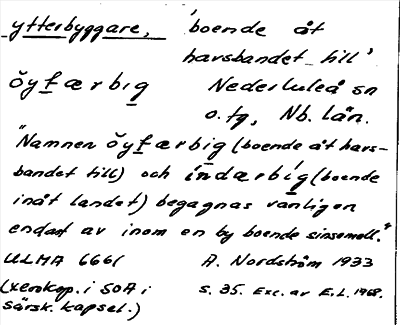 ytterbyggare, 'boende åt
havsbandet till'
ŏyfærbıg Nederluleå sn
o. tg, Nb. län.
"Namnen ŏyfærbıg (boende åt havs-
bandet till) och índærbíg (boende
inåt landet) begagnas vanligen
endast av inom en by boende sinsemell."
ULMA 6661 A. Nordström 1933
(xerokop. i SOA i s. 35. Exc. av E.L. 1968.
särsk. kapsel.)